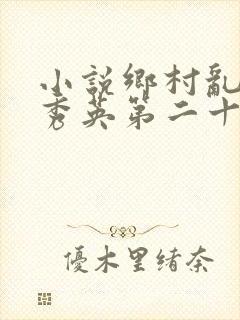 小說鄉村亂
秀英第二十
優木里緒奈